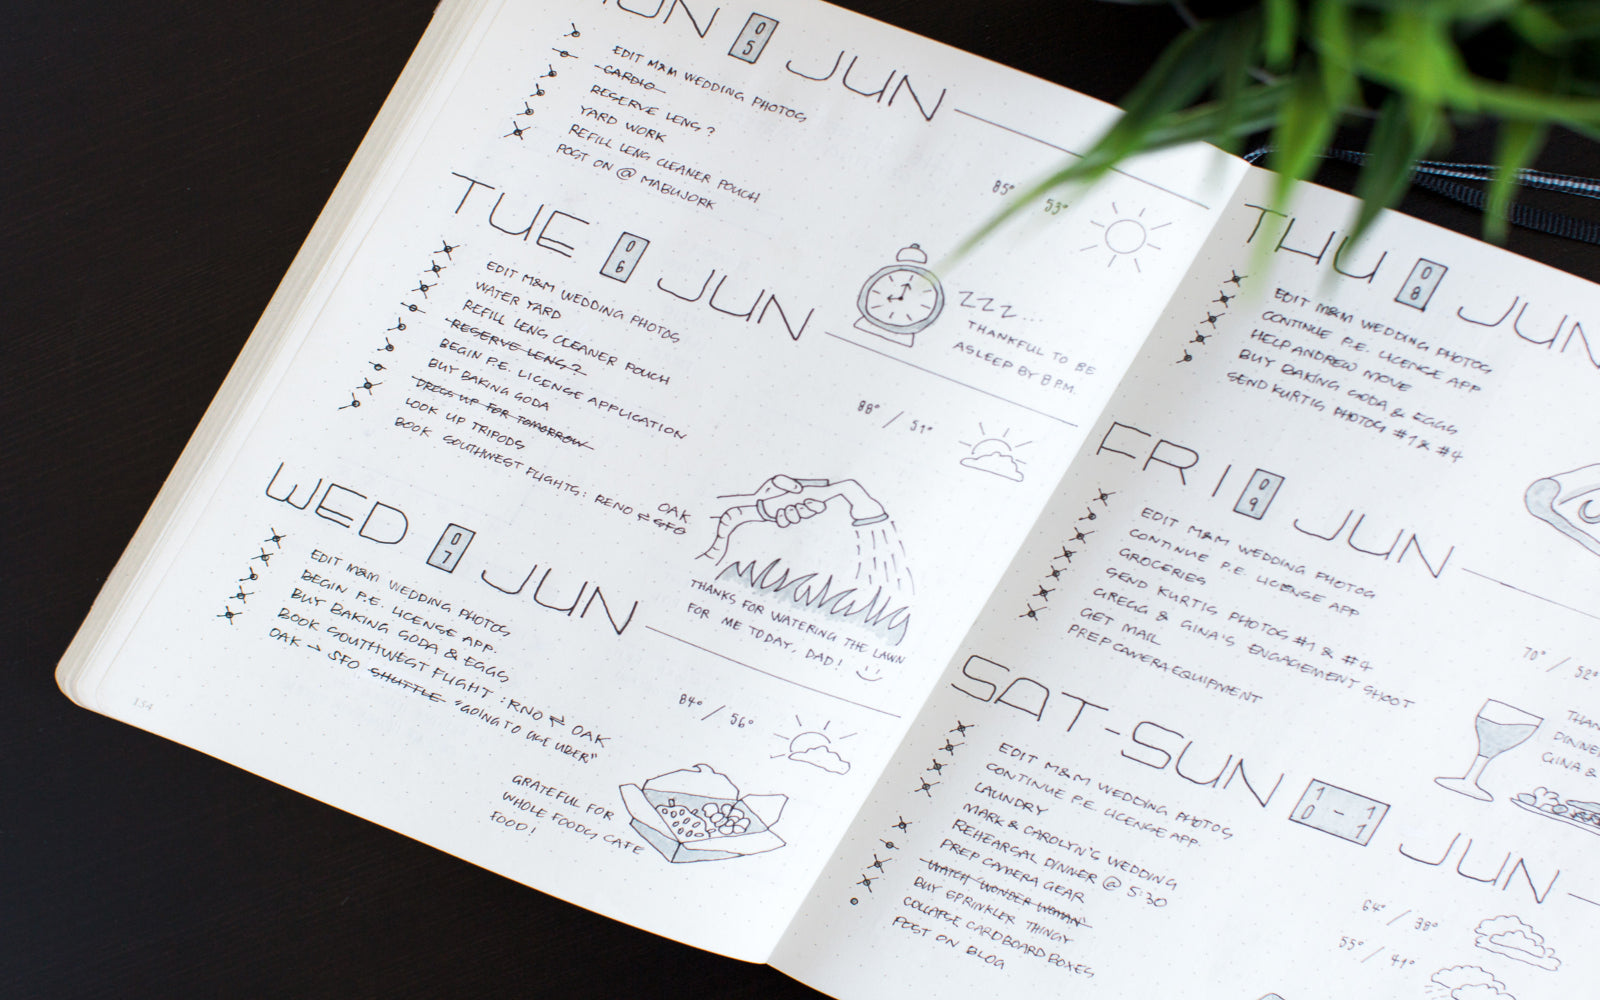 JUN
05
EDIT M&M WEDDING PHOTOS
CARDIO
RESERVE LENS?
YARD WORK
REFILL LENS CLEANER POUCH
POST ON @MABUJORK
85° 53°
TUE 06 JUN
EDIT M&M WEDDING PHOTOS
WATER YARD
REFILL LENS CLEANER POUCH
RESERVE LENS?
BEGIN P.E. LICENSE APPLICATION
BUY BAKING SODA
DRESS UP FOR TOMORROW
LOOK UP TRIPODS
BOOK SOUTHWEST FLIGHTS: RENO ⇄ SFO
OAK
ZZZ...
THANKFUL TO BE
ASLEEP BY 8 P.M.
88° / 51°
THANKS FOR WATERING THE LAWN
FOR ME TODAY, DAD!
WED 07 JUN
EDIT M&M WEDDING PHOTOS
BEGIN P.E. LICENSE APP.
BUY BAKING SODA & EGGS
BOOK SOUTHWEST FLIGHT: RNO ⇄ OAK
OAK → SFO SHUTTLE "GOING TO USE UBER"
84° / 56°
GRATEFUL FOR
WHOLE FOODS CAFE
FOOD!
134
THU 08 JUN
EDIT M&M WEDDING PHOTOS
CONTINUE P.E. LICENSE APP
HELP ANDREW MOVE
BUY BAKING SODA & EGGS
SEND KURTIS PHOTOS #1 & #4
FRI 09 JUN
EDIT M&M WEDDING PHOTOS
CONTINUE P.E. LICENSE APP
GROCERIES
SEND KURTIS PHOTOS #1 & #4
GREGG & GINA'S ENGAGEMENT SHOOT
GET MAIL
PREP CAMERA EQUIPMENT
70° / 52°
DINNE
GINA &
SAT-SUN 10-11 JUN
EDIT M&M WEDDING PHOTOS
CONTINUE P.E. LICENSE APP.
LAUNDRY
MARK & CAROLYN'S WEDDING
REHEARSAL DINNER @ 5:30
PREP CAMERA GEAR
WATCH "WONDER WOMAN"
BUY SPRINKLER THINGY
COLLAPSE CARDBOARD BOXES
POST ON BLOG
64° / 38°
55° / 41°